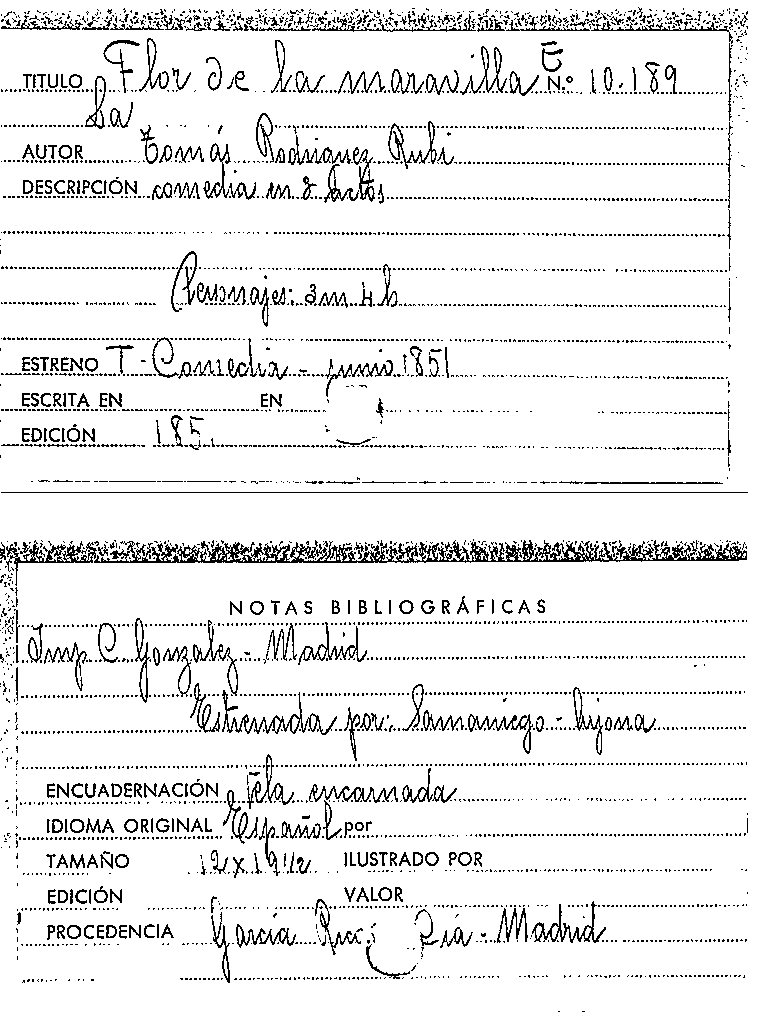 TITULO Flor de la maravilla E N.º 10.189
La
AUTOR Tomás Rodriguez Rubi
DESCRIPCIÓN comedia en actos
Personajes: 3m 4h
ESTRENO T - Comedia - junio 1851
ESCRITA EN EN
EDICIÓN 185
NOTAS BIBLIOGRÁFICAS
Imp C. Gonzalez - Madrid
Estrenada por: Samaniego -
ENCUADERNACIÓN Tela encarnada
IDIOMA ORIGINAL Español por
TAMAÑO 12x19 1/2 ILUSTRADO POR
EDICIÓN VALOR
PROCEDENCIA García Madrid